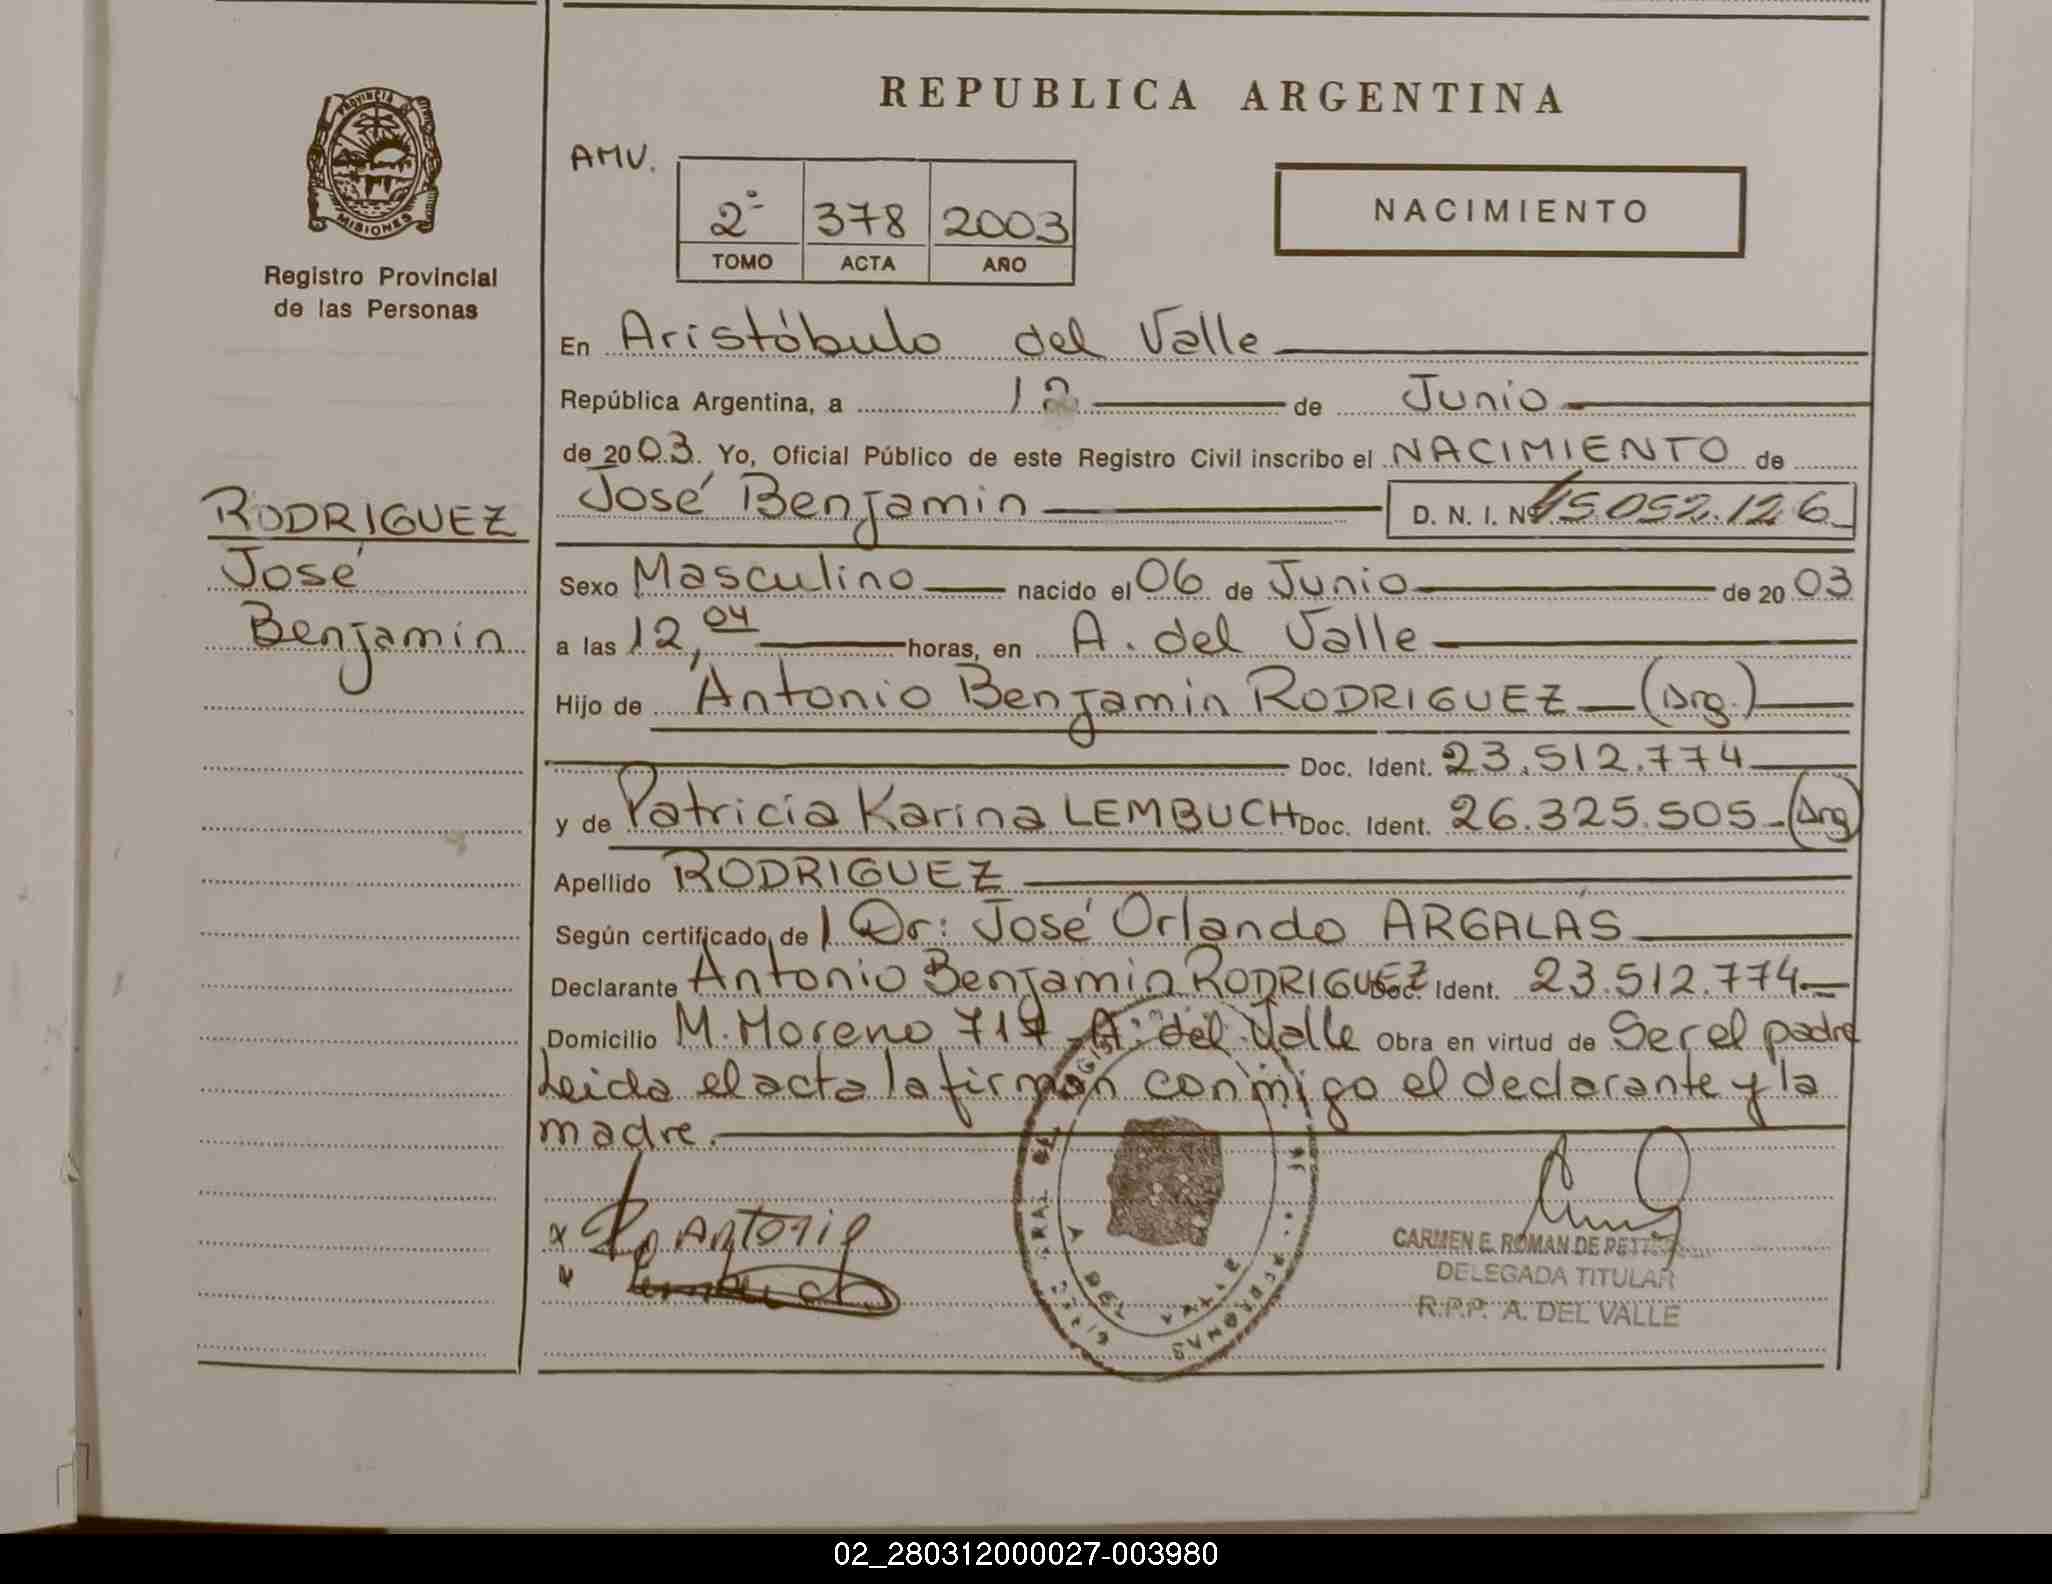 REPUBLICA ARGENTINA
PROVINCIA DE
MISIONES
Registro Provincial
de las Personas
AMV.
2º 378 2003
TOMO ACTA AÑO
NACIMIENTO
En Aristóbulo del Valle
República Argentina, a 12 de Junio
de 2003. Yo, Oficial Público de este Registro Civil inscribo el NACIMIENTO de
José Benjamin D. N. I. Nº 45.052.126
RODRIGUEZ
José
Benjamin
Sexo Masculino nacido el 06 de Junio de 2003
a las 12,04 horas, en A. del Valle
Hijo de Antonio Benjamin RODRIGUEZ (Arg.)
Doc. Ident. 23.512.774
y de Patricia Karina LEMBUCH Doc. Ident. 26.325.505 - (Arg)
Apellido RODRIGUEZ
Según certificado de / Dr: José Orlando ARGALÁS
Declarante Antonio Benjamin RODRIGUEZ Doc. Ident. 23.512.774
Domicilio M. Moreno 717 A. del Valle Obra en virtud de Ser el padre
Leida el acta la firman conmigo el declarante y la
madre.
x Antonio
x
A DEL VALLE
PERSONAS
CARMEN E. ROMAN DE
DELEGADA TITULAR
R.P.P. A. DEL VALLE
02_280312000027-003980